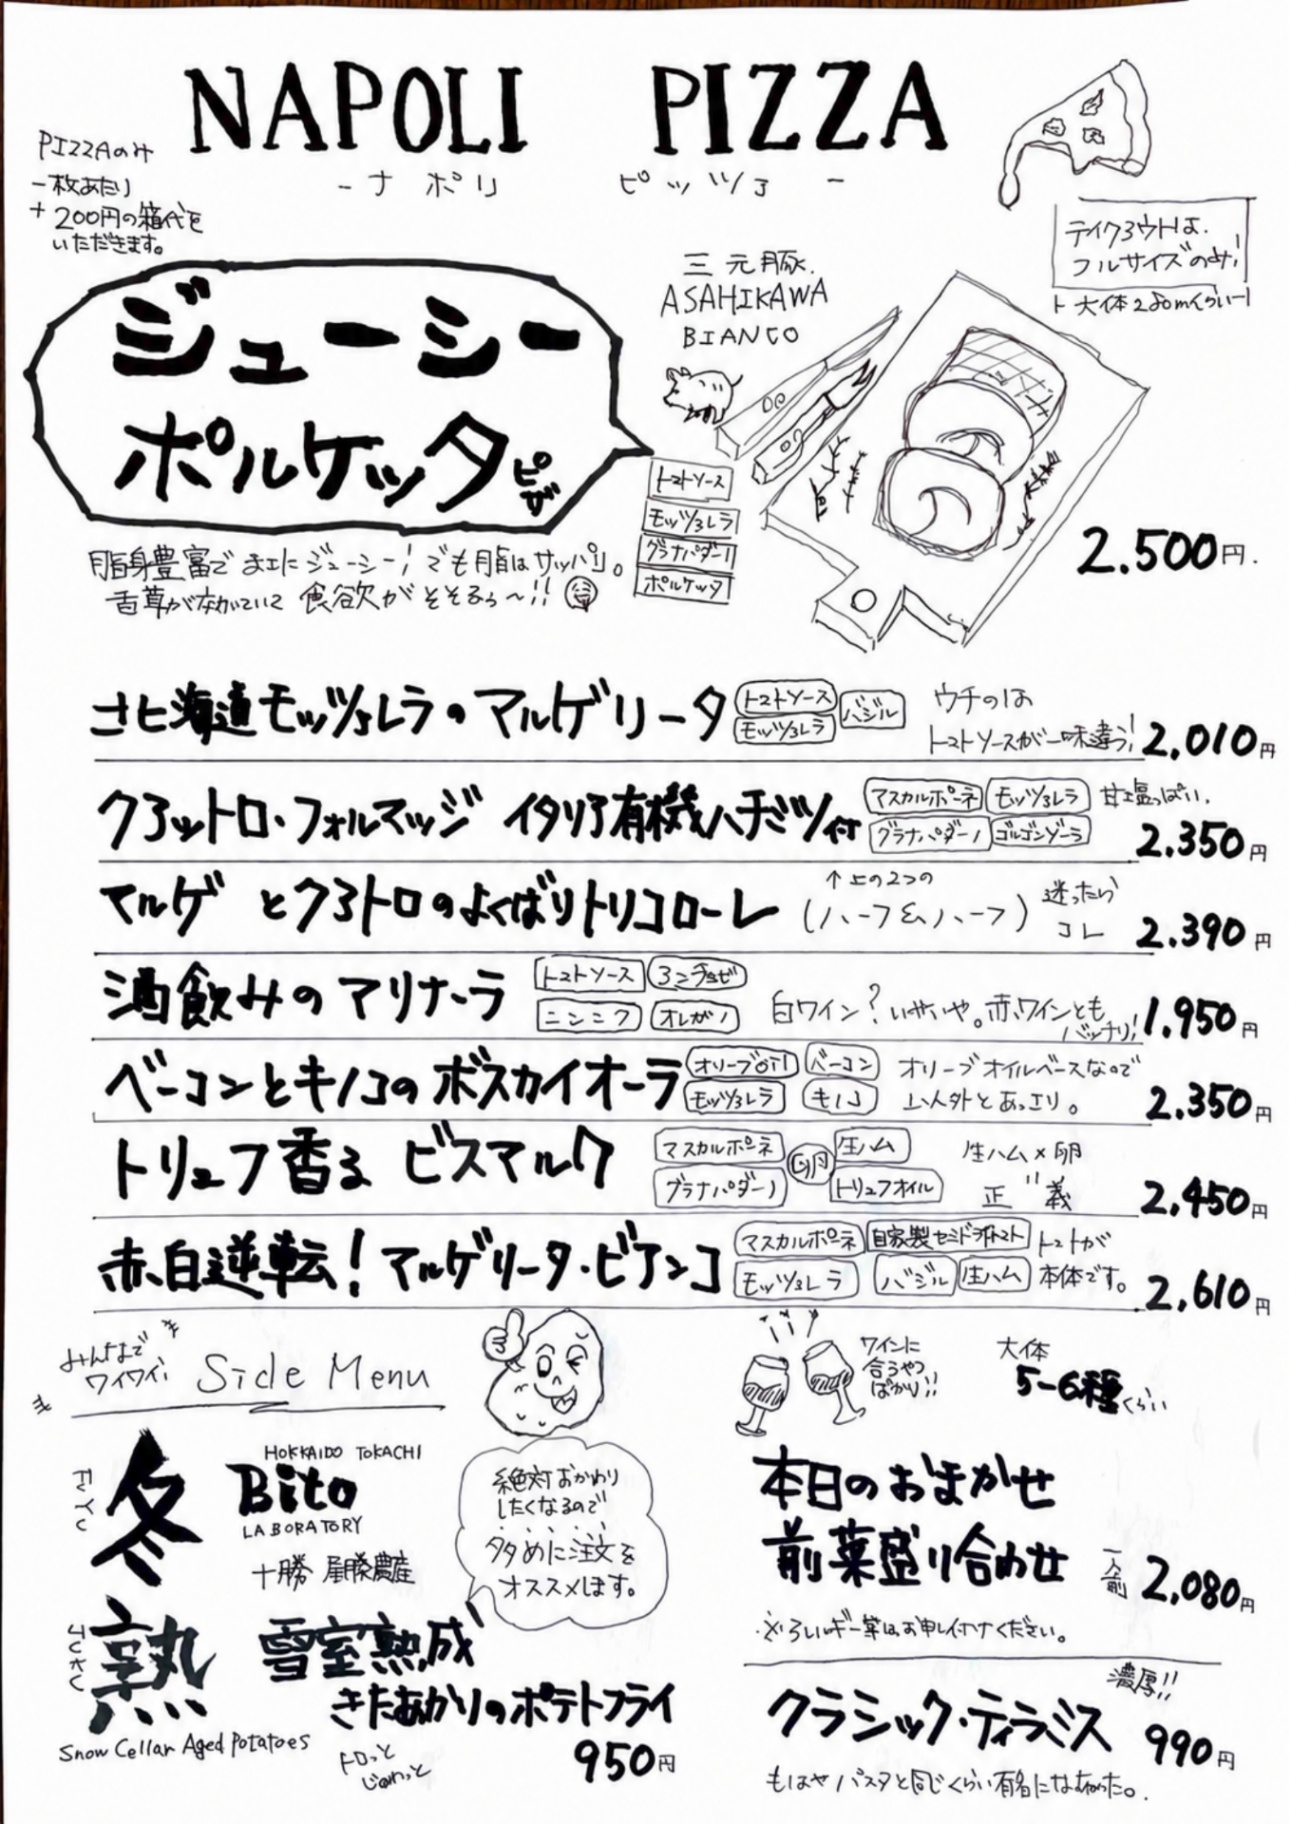 NAPOLI PIZZA
-ナポリ ピッツァ-
PIZZAのみ
一枚あたり
+200円の箱代を
いただきます。
テイクアウトは、
フルサイズのみ!
ト大体28cmくらいー
ジューシー
ポルケッタピザ
三元豚.
ASAHIKAWA
BIANCO
トマトソース
モッツァレラ
グラナパダーノ
ポルケッタ
2.500円.
脂身豊富でまさにジューシー!でも脂はサッパリ。
香草が効いていて食欲がそそるぅ〜!!
北海道モッツァレラのマルゲリータ
トマトソース バジル
モッツァレラ
ウチのは
トマトソースが一味違う! 2,010円
クアットロ・フォルマッジ イタリア有機ハチミツ付
マスカルポーネ モッツァレラ 甘塩っぱい.
グラナパダーノ ゴルゴンゾーラ
2.350円
マルゲとクアトロのよくばりトリコローレ
↑上の2つの
(ハーフ&ハーフ)
迷ったら
コレ 2.390円
酒飲みのマリナーラ
トマトソース アンチョビ
ニンニク オレガノ
白ワイン?いやいや。赤ワインとも
バッチリ! 1.950円
ベーコンとキノコのボスカイオーラ
オリーブOil ベーコン
モッツァレラ キノコ
オリーブオイルベースなので
以外とあっさり。 2.350円
トリュフ香るビスマルク
マスカルポーネ 卵 生ハム
グラナパダーノ トリュフオイル
生ハム×卵
正"義 2,450円
赤白逆転!マルゲリータ・ビアンコ
マスカルポーネ 自家製セミドライトマト
モッツァレラ バジル 生ハム
トマトが
本体です。 2,610円
みんなで
ワイワイ
Side Menu
冬
FUYU
熟
JUKU
HOKKAIDO TOKACHI
Bito
LABORATORY
十勝 尾藤農産
絶対おかわり
したくなるので
多めに注文を
オススメします。
雪室熟成
きたあかりのポテトフライ
Snow Cellar Aged Potatoes
トロっと
じゅわっと
950円
ワインに
合うやつ
ばかり!!
大体
5-6種くらい
本日のおまかせ
前菜盛り合わせ
一人前 2,080円
※アレルギー等はお申し付けください。
クラシック・ティラミス
濃厚!!
990円
もはやパスタと同じくらい有名になっちゃった。